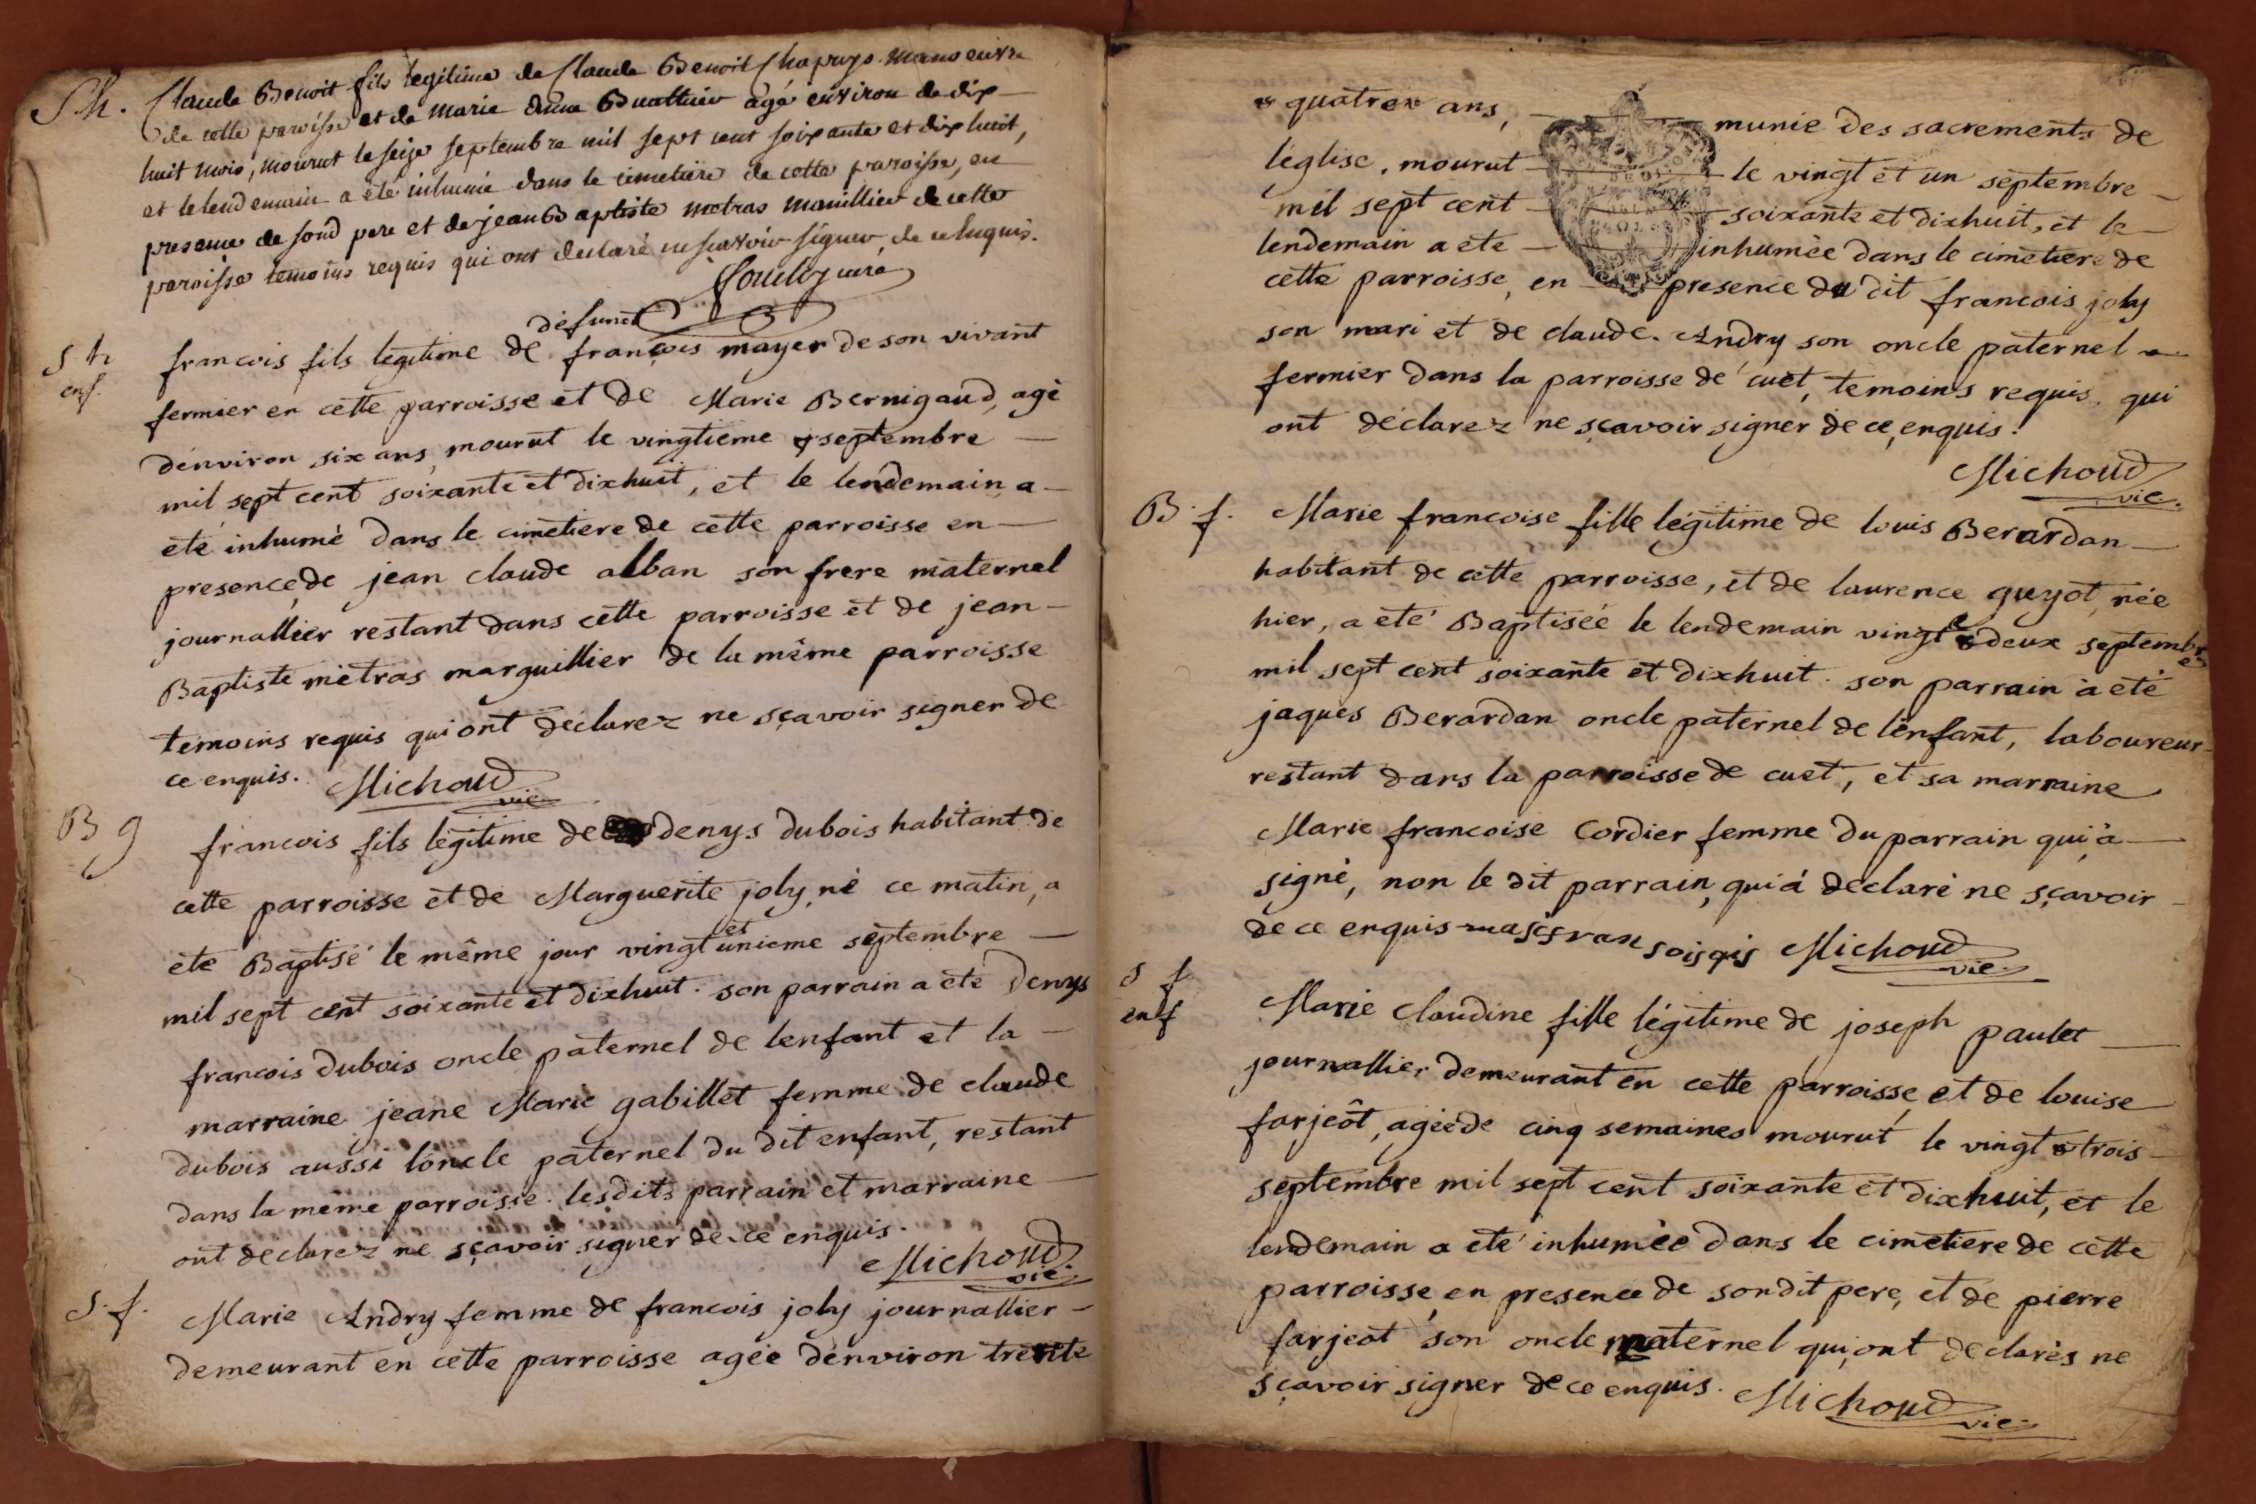 S h. Claude Benoit fils legitime de Claude Benoit Chapuys manoeuvre
de cette paroisse et de marie Buathier agé environ de dix
huit mois, mourut le seize septembre mil sept cent soixante et dix huit,
et le lendemain a été inhumé dans le cimetiere de cette paroisse, en
presence de sond pere et de jean Baptiste metras manillier de cette
paroisse temoins requis qui ont declaré ne scavoir signer de ce enquis.
curé
S h
enf.
defunct
francois fils legitime de françois mayer de son vivant
fermier en cette parroisse et de Marie Bernigaud, agé
denviron six ans, mourut le vingtieme septembre
mil sept cent soixante et dixhuit, et le lendemain a
eté inhumé dans le cimetiere de cette parroisse en
presence de jean claude alban son frere maternel
journallier restant dans cette parroisse et de jean
Baptiste métras marguillier de la même parroisse
temoins requis qui ont déclarez ne sçavoir signer de
ce enquis. Michoud
vie
B g
francois fils légitime de denys dubois habitant de
cette parroisse et de Marguerite joly, né ce matin, a
eté Baptisé le même jour vingt et unieme septembre
mil sept cent soixante et dixhuit. son parrain a eté Denys
francois dubois oncle paternel de lenfant et la
marraine jeane Marie gabillet femme de claude
dubois aussi loncle paternel du dit enfant, restant
dans la même parroisse. lesdits parrain et marraine
ont declarez ne sçavoir signer de ce enquis.
Michoud
vie.
S. f.
Marie Andry femme de francois joly journallier
demeurant en cette parroisse agée denviron trente
quatre ans, munie des sacrements de
léglise, mourut le vingt et un septembre
mil sept cent soixante et dixhuit, et le
lendemain a eté inhumée dans le cimetiere de
cette parroisse, en presence du dit francois joly
son mari et de claude Andry son oncle paternel
fermier dans la parroisse de cuet, temoins requis, qui
ont déclarez ne sçavoir signer de ce enquis.
Michoud
vie.
B. f.
Marie francoise fille légitime de louis Berardan
habitant de cette parroisse, et de laurence guyot, née
hier, a eté Baptisée le lendemain vingt deux septembre
mil sept cent soixante et dixhuit. son parrain a eté
jaques Berardan oncle paternel de lenfant, laboureur
restant dans la parroisse de cuet, et sa marraine
Marie francoise Cordier femme du parrain qui a
signé, non le dit parrain, qui a déclaré ne sçavoir
de ce enquis Michoud
vie.
S f
enf
Marie Claudine fille légitime de joseph paulet
journallier demeurant en cette parroisse et de louise
farjeôt, agée de cinq semaines mourut le vingt trois
septembre mil sept cent soixante et dixhuit, et le
lendemain a eté inhumée dans le cimetiere de cette
parroisse, en presence de sondit pere, et de pierre
farjeot son oncle maternel qui ont declarés ne
sçavoir signer de ce enquis. Michoud
vie.